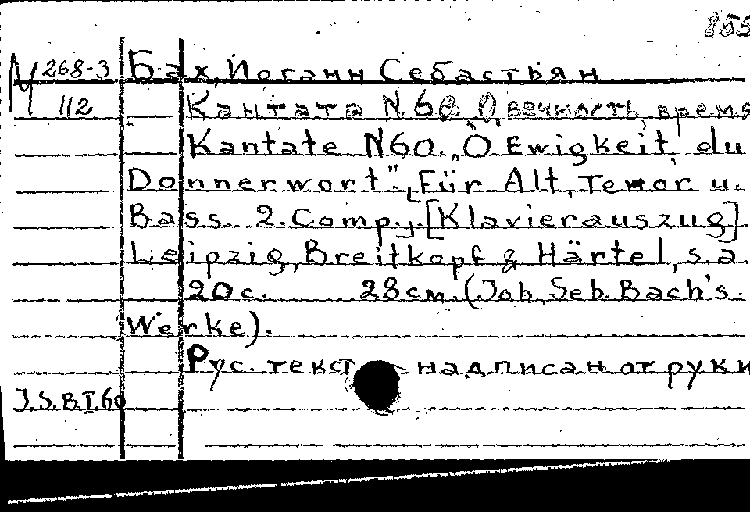 855
М 268-3 Бах, Иоганн Себастьян
112 Кантата N.60. О, вечность, время
Kantate N60. „O Ewigkeit, du
Donnerwort". Für Alt, Tenor u.
Bass. 2. Comp. [Klavierauszug]
Leipzig, Breitkopf & Härtel, s.a.
20 с. 28 cm. (Joh. Seb. Bach's
Werke).
Рус. текст надписан от руки
J.S.B.I.60